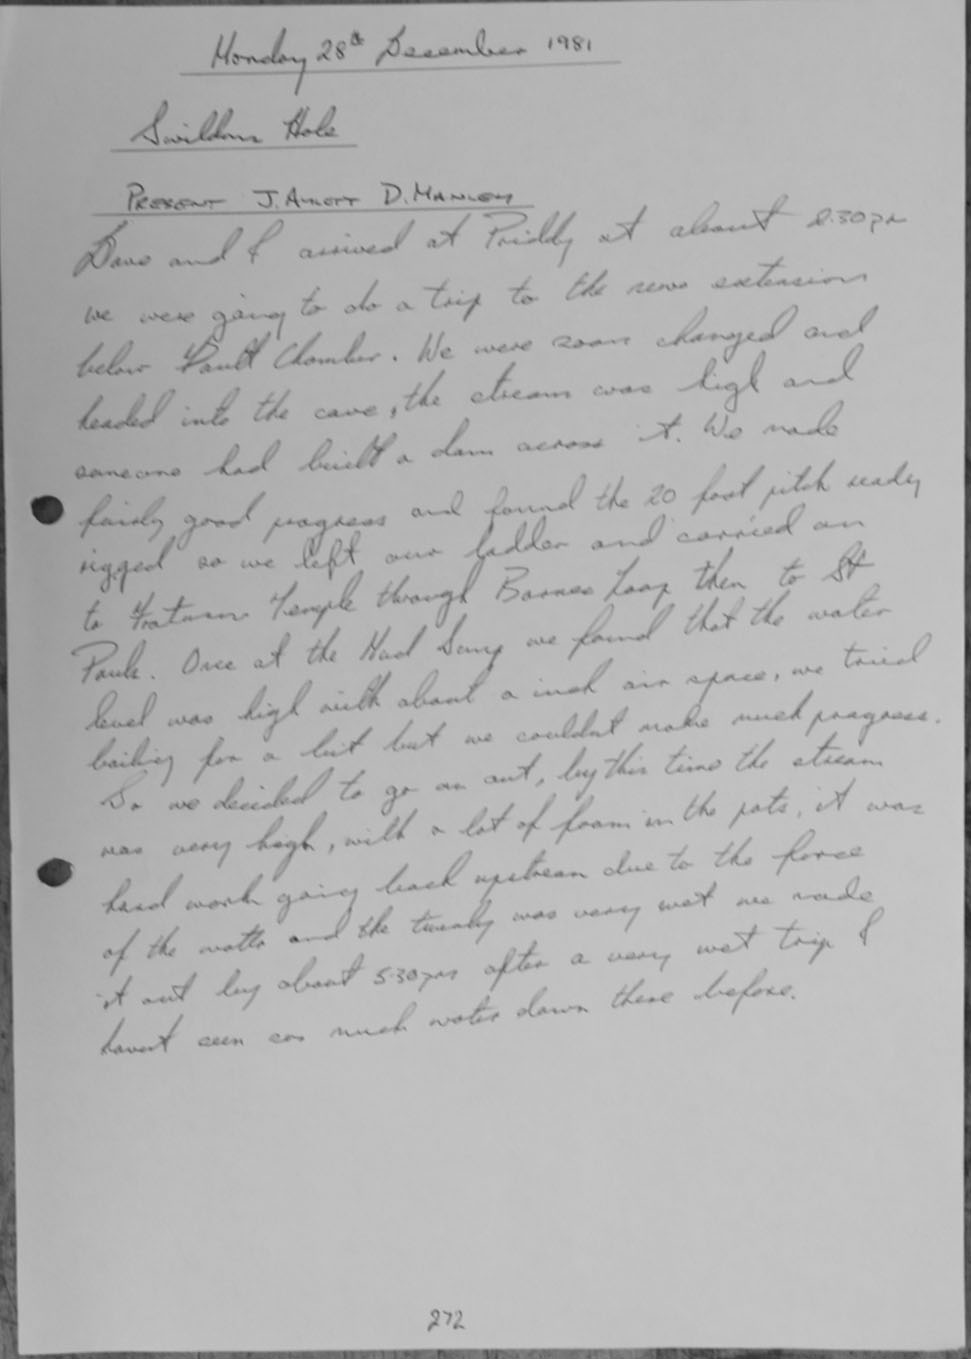 Monday 28th December 1981
Swildons Hole
PRESENT J. AYLOTT D. MANLEY
Dave and I arrived at Priddy at about 2.30pm
we were going to do a trip to the new extension
below Vault Chamber. We were soon changed and
headed into the cave, the stream was high and
someone had built a dam across it. We made
fairly good progress and found the 20 foot pitch ready
rigged so we left our ladder and carried on
to Tratmans Temple through Barnes Loop then to St
Pauls. Once at the Mud Sump we found that the water
level was high with about a inch air space, we tried
bailing for a bit but we couldnt make much progress.
So we decided to go on out, by this time the stream
was very high, with a lot of foam in the pots, it was
hard work going back upstream due to the force
of the water and the twenty was very wet we made
it out by about 5.30pm after a very wet trip I
havent seen so much water down there before.
272